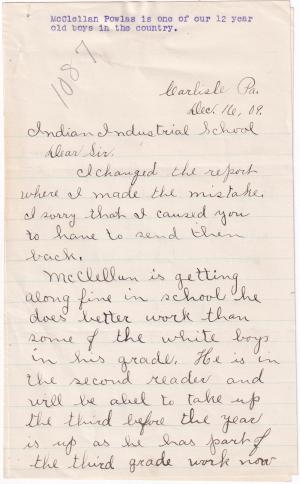 McClellan Powlas is one of our 12 year
old boys in the country.
1087
Carlisle Pa.
Dec. 16, 09.
Indian Industrial School
Dear Sir.
I changed the report
where I made the mistake.
I sorry that I caused you
to have to send them
back.
McClellan is getting
along fine in school he
does better work than
some of the white boys
in his grade. He is in
the second reader and
will be abel to take up
the third before the year
is up as he has part of
the third grade work now